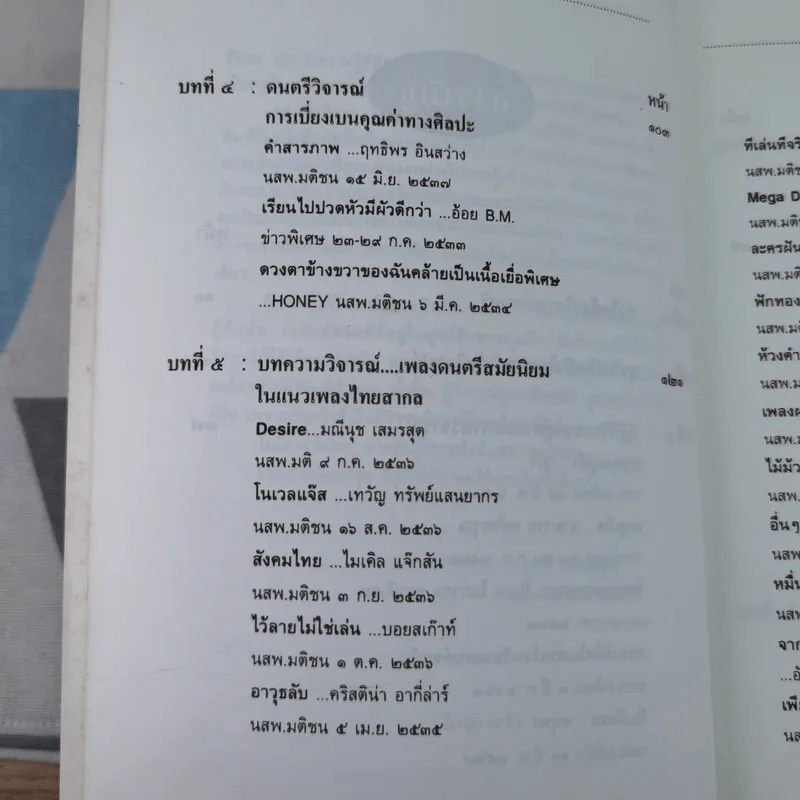 หน้า
บทที่ ๔ : ดนตรีวิจารณ์
การเบี่ยงเบนคุณค่าทางศิลปะ ๑๐๓
คำสารภาพ ...ฤทธิพร อินสว่าง
นสพ.มติชน ๑๕ มิ.ย. ๒๕๓๗
เรียนไปปวดหัวมีผัวดีกว่า ...อ้อย B.M.
ข่าวพิเศษ ๒๓-๒๙ ก.ค. ๒๕๓๓
ดวงตาข้างขวาของฉันคล้ายเป็นเนื้อเยื่อพิเศษ
...HONEY นสพ.มติชน ๖ มี.ค. ๒๕๓๔
บทที่ ๕ : บทความวิจารณ์....เพลงดนตรีสมัยนิยม ๑๒๑
ในแนวเพลงไทยสากล
Desire...มณีนุช เสมรสุต
นสพ.มติ ๙ ก.ค. ๒๕๓๖
โนเวลแจ๊ส ...เทวัญ ทรัพย์แสนยากร
นสพ.มติชน ๑๖ ส.ค. ๒๕๓๖
สังคมไทย ...ไมเคิล แจ๊กสัน
นสพ.มติชน ๓ ก.ย. ๒๕๓๖
ไว้ลายไม่ใช่เล่น ...บอยสเก๊าท์
นสพ.มติชน ๑ ต.ค. ๒๕๓๖
อาวุธลับ ...คริสติน่า อากี่ล่าร์
นสพ.มติชน ๕ เม.ย. ๒๕๓๕
ทีเล่นทีจริ
นสพ.มติช
Mega D
นสพ.มติ
ละครฝัน
นสพ.มติ
ฟักทอง
นสพ.มติ
ห้วงคำ
นสพ.มติ
เพลง
นสพ.ม
ไม้ม้ว
นสพ.
อื่นๆ
นสพ
หมื่น
นสพ
จาก
เพีย
นส